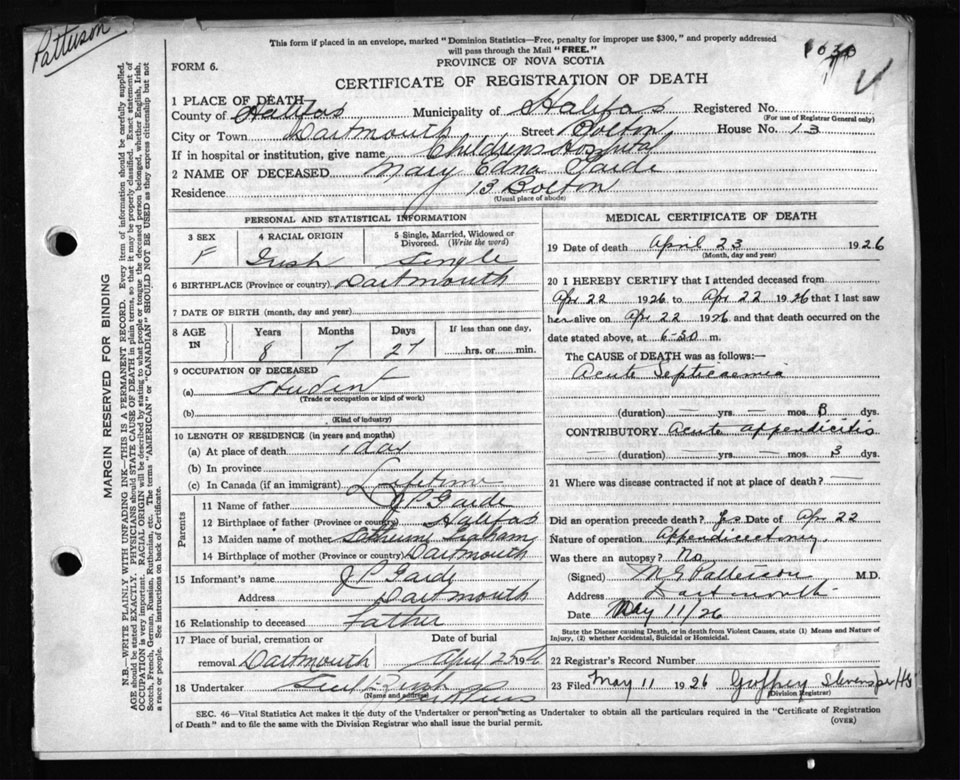 Patterson
This form if placed in an envelope, marked "Dominion Statistics—Free, penalty for improper use $300," and properly addressed
will pass through the Mail "FREE."
PROVINCE OF NOVA SCOTIA
FORM 6.
CERTIFICATE OF REGISTRATION OF DEATH
MARGIN RESERVED FOR BINDING
N.B.—WRITE PLAINLY WITH UNFADING INK—THIS IS A PERMANENT RECORD. Every item of information should be carefully supplied.
AGE should be stated EXACTLY. PHYSICIANS should STATE CAUSE OF DEATH in plain terms, so that it may be properly classified. Exact statement of
OCCUPATION is very important. RACIAL ORIGIN will be described by stating to what people or tongue the deceased person belonged, whether English, Irish,
Scotch, French, German, Russian, Ruthenian, etc. The terms "AMERICAN" or "CANADIAN" SHOULD NOT BE USED as they express citizenship but not
a race or people. See instructions on back of Certificate.
1 PLACE OF DEATH
County of Halifax Municipality of Halifax Registered No.
(For use of Registrar General only)
City or Town Dartmouth Street Bolton House No. 13
If in hospital or institution, give name Childrens Hospital
2 NAME OF DECEASED Mary Edna
Residence 13 Bolton
(Usual place of abode)
PERSONAL AND STATISTICAL INFORMATION
3 SEX 4 RACIAL ORIGIN 5 Single, Married, Widowed or
Divorced. (Write the word)
F Irish Single
6 BIRTHPLACE (Province or country) Dartmouth
7 DATE OF BIRTH (month, day and year)
8 AGE IN Years Months Days If less than one day,
8 7 27 hrs. or min.
9 OCCUPATION OF DECEASED
(a) Student
(Trade or occupation or kind of work)
(b)
(Kind of industry)
10 LENGTH OF RESIDENCE (in years and months)
(a) At place of death 1 day
(b) In province
(c) In Canada (if an immigrant) Lifetime
Parents
11 Name of father J P
12 Birthplace of father (Province or country) Halifax
13 Maiden name of mother Graham
14 Birthplace of mother (Province or country) Dartmouth
15 Informant's name J P
Address Dartmouth
16 Relationship to deceased Father
17 Place of burial, cremation or Date of burial
removal Dartmouth April 25th
18 Undertaker
(Name and address)
MEDICAL CERTIFICATE OF DEATH
19 Date of death April 23 1926
(Month, day and year)
20 I HEREBY CERTIFY that I attended deceased from
Apr 22 1926 to Apr 22 1926 that I last saw
her alive on Apr 22 1926 and that death occurred on the
date stated above, at 6-30 m.
The CAUSE of DEATH was as follows:—
Acute Septicaemia
(duration) — yrs. — mos. 3 dys.
CONTRIBUTORY Acute appendicitis
(duration) — yrs. — mos. 3 dys.
21 Where was disease contracted if not at place of death? —
Did an operation precede death? Yes Date of Apr 22
Nature of operation Appendicectomy
Was there an autopsy? No
(Signed) M G Patterson M.D.
Address Dartmouth
Date May 11/26
State the Disease causing Death, or in death from Violent Causes, state (1) Means and Nature of
Injury, (2) whether Accidental, Suicidal or Homicidal.
22 Registrar's Record Number
23 Filed May 11 1926 Geoffrey Stevens per
(Division Registrar)
SEC. 46—Vital Statistics Act makes it the duty of the Undertaker or person acting as Undertaker to obtain all the particulars required in the "Certificate of Registration
of Death" and to file the same with the Division Registrar who shall issue the burial permit.
(OVER)